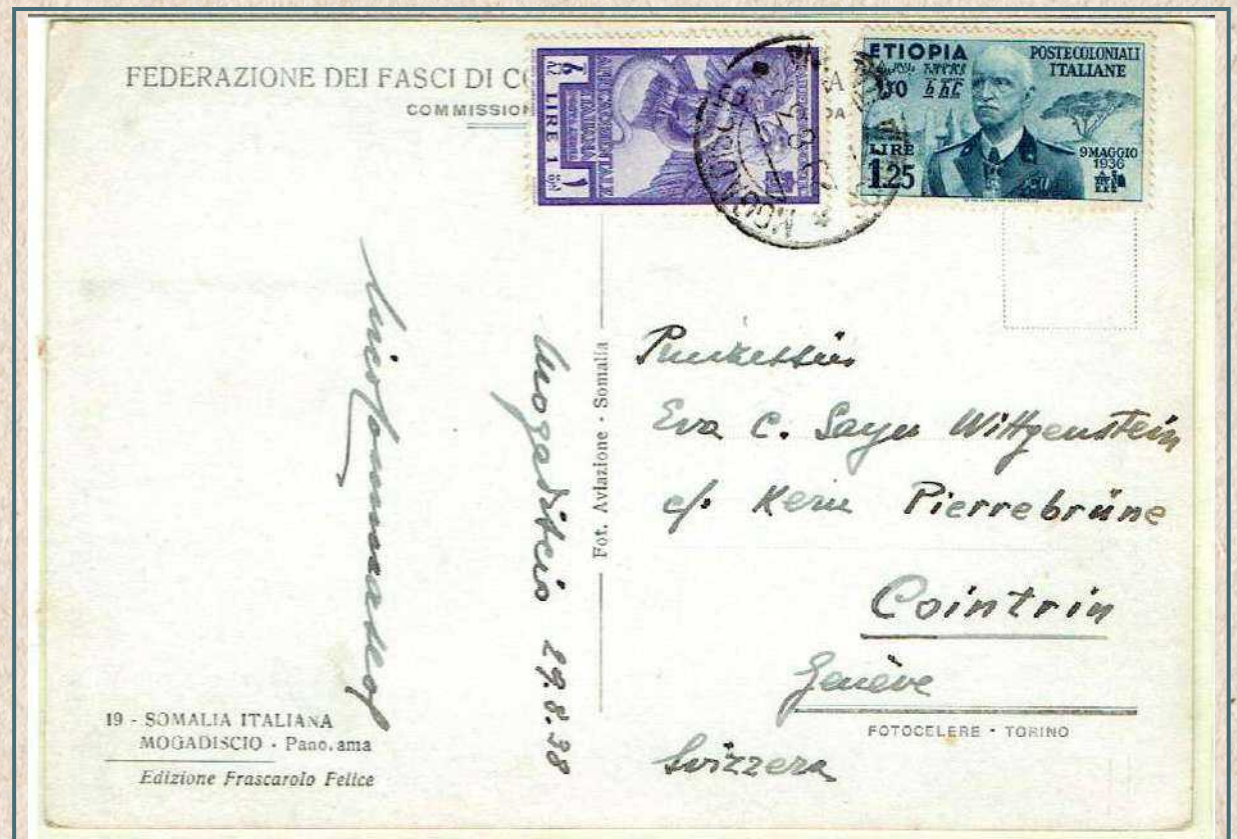 FEDERAZIONE DEI FASCI DI CO
COMMISSION
LIRE 1
ETIOPIA
POSTE COLONIALI
ITALIANE
LIRE
1.25
9 MAGGIO
1936
MOGADISCIO
Mogadiscio 29.8.38
Fot. Aviazione - Somalia
Eva C. Sayn Wittgenstein
c/. Kern Pierrebrüne
Cointrin
Genève
Svizzera
FOTOCELERE - TORINO
19 - SOMALIA ITALIANA
MOGADISCIO - Pano.ama
Edizione Frascarolo Felice